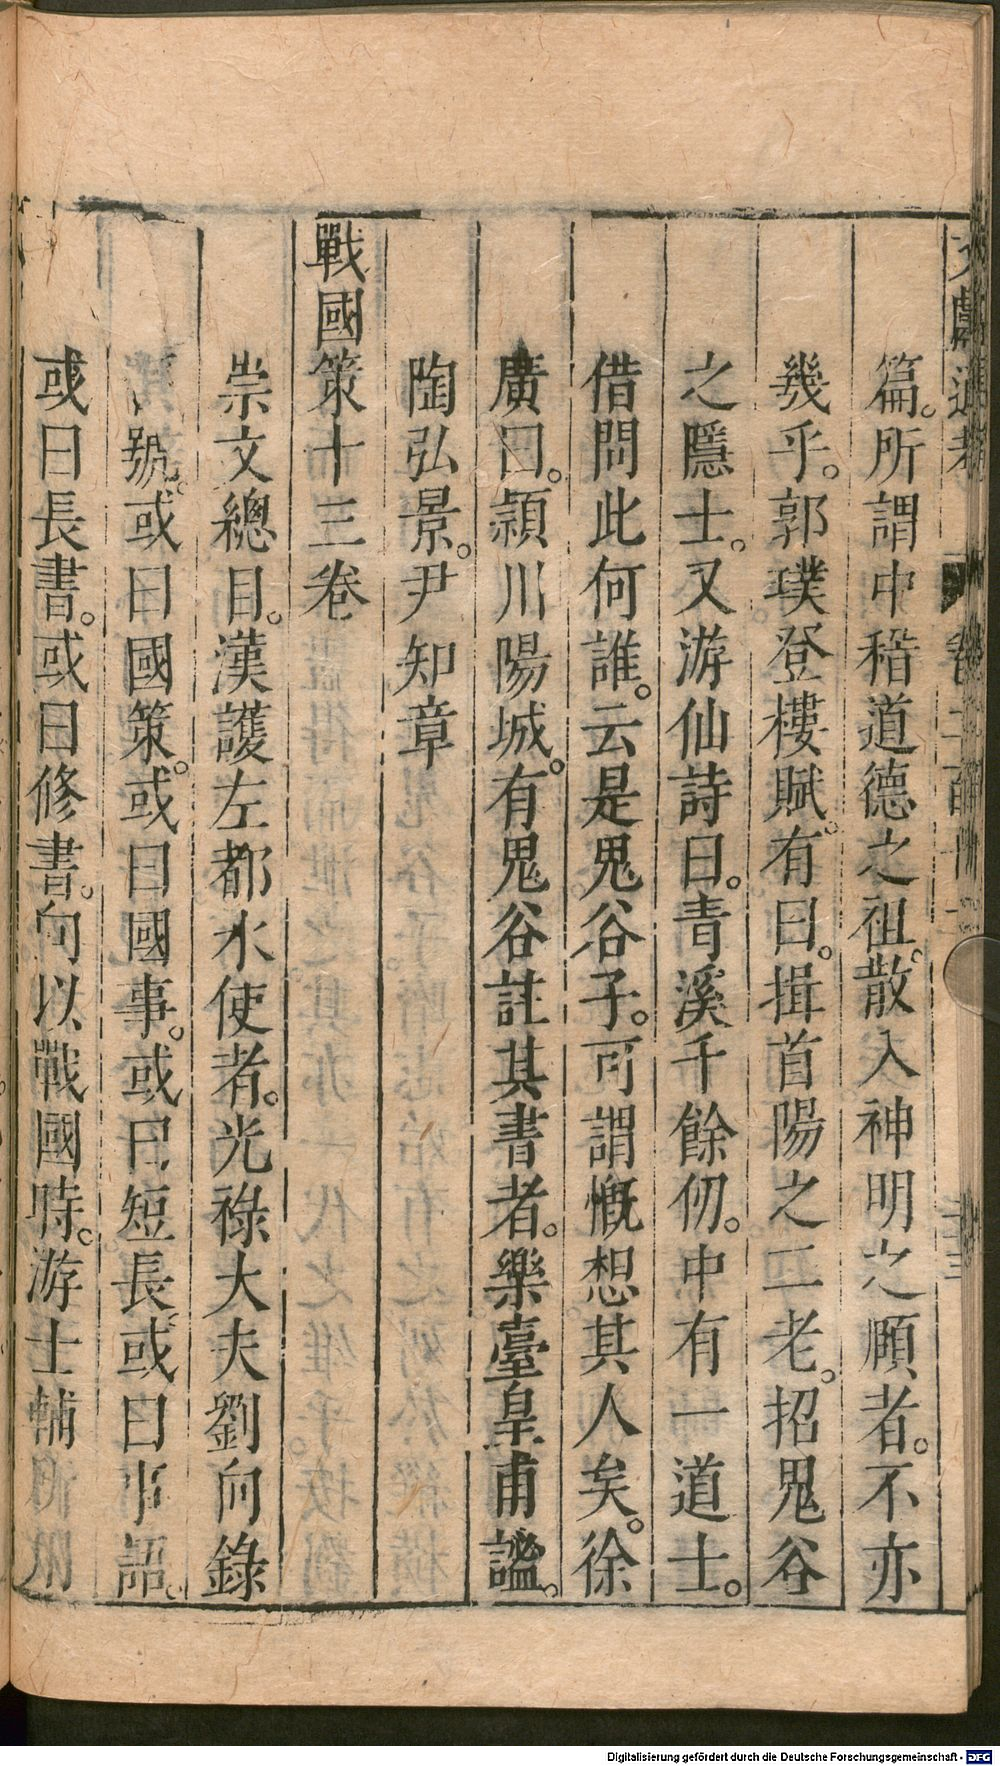 篇。所謂中稽道德之祖。散入神明之頤者。不亦
幾乎。郭璞登樓賦。有曰。揖首陽之二老。招鬼谷
之隱士。又游仙詩曰。青溪千餘仞。中有一道士。
借問此何誰。云是鬼谷子。可謂慨想其人矣。徐
廣曰。潁川陽城。有鬼谷註其書者。樂臺皇甫謐。
陶弘景。尹知章
戰國策十三卷
崇文總目。漢護左都水使者。光祿大夫劉向錄
號。或曰國策。或曰國事。或曰短長。或曰事語。
或曰長書。或曰修書。向以戰國時。游士輔
Digitalisierung gefördert durch die Deutsche Forschungsgemeinschaft - DFG